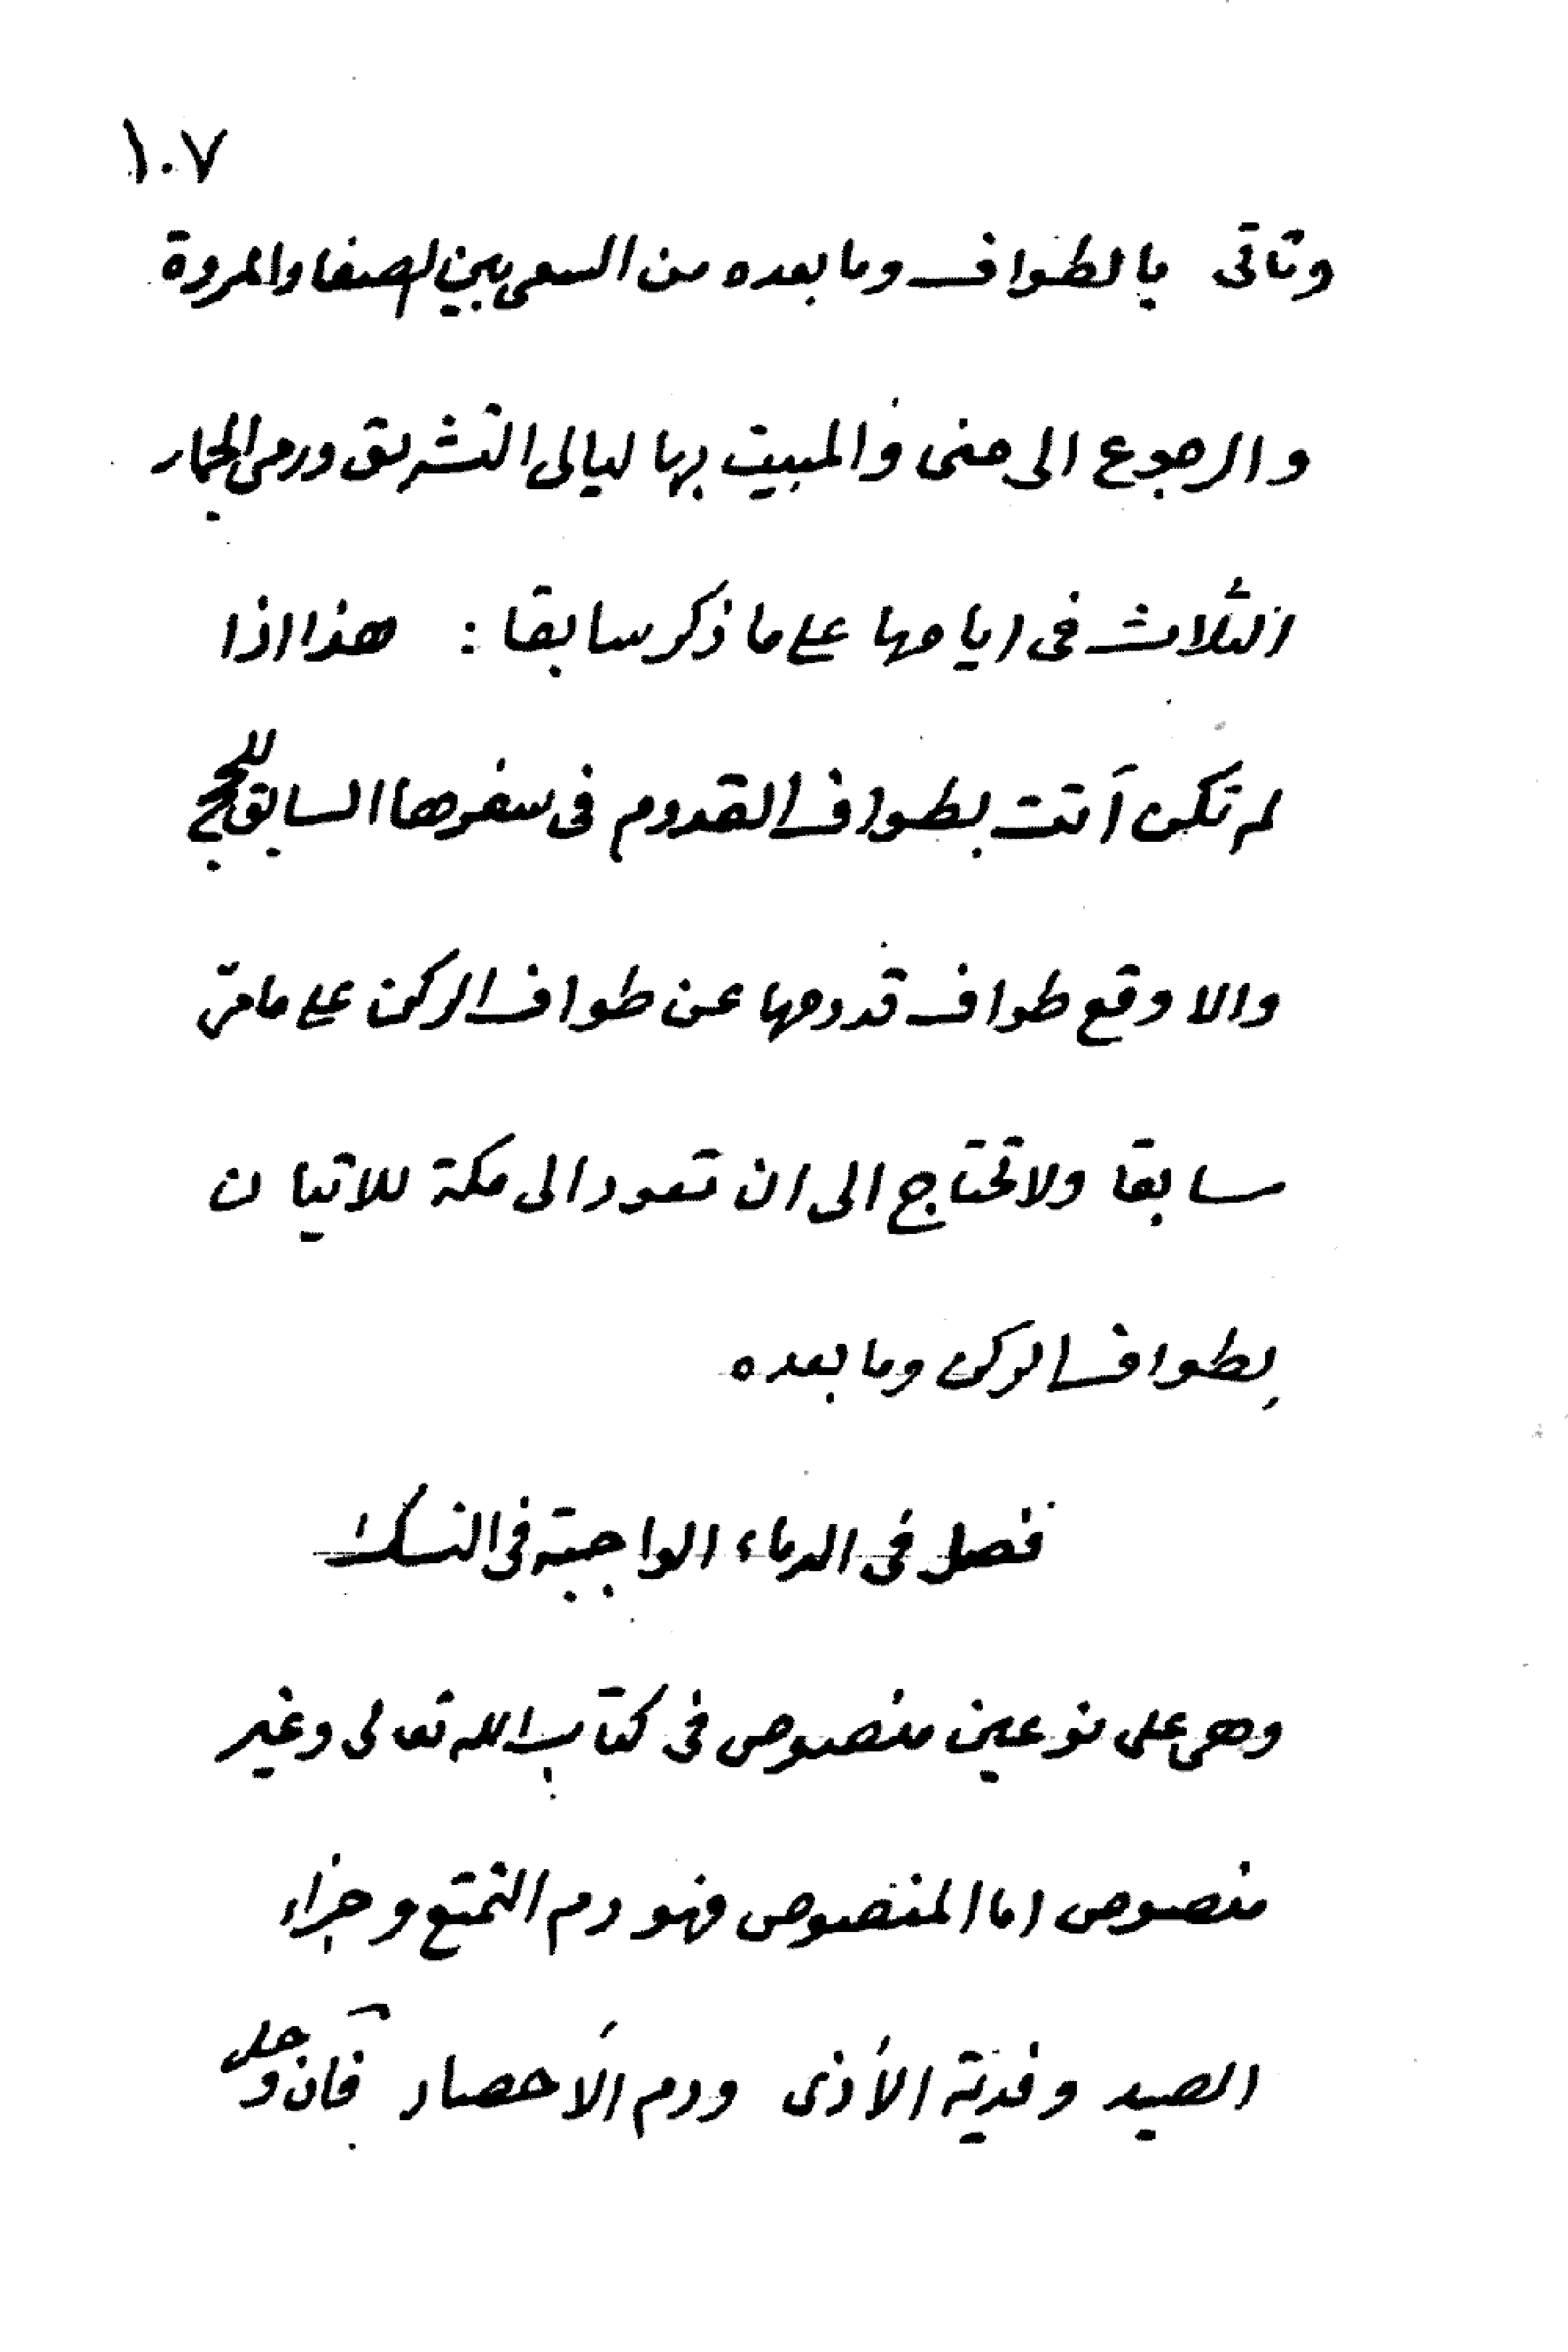 ١٠٧
وتاتى بالطواف وما بعده من السعى بين الصفا والمروة
والرجوع الى منى والمبيت بها ليالى التشريق ورمى الجمار
الثلاث فى ايامها على ما ذكر سابقا : هذا اذا
لم تكن أتت بطواف القدوم فى سفرها السابق للحج
والا وقع طواف قدومها عن طواف الركن على ما مرّ
سابقا ولا تحتاج الى ان تعود الى مكة للاتيان
بطواف الركن وما بعده
فصل فى الدماء الواجبة فى النسك
وهى على نوعين منصوص فى كتاب الله تعالى وغير
منصوص اما المنصوص فهو دم التمتع وجزاء
الصيد وفدية الأذى ودم الأحصار قال